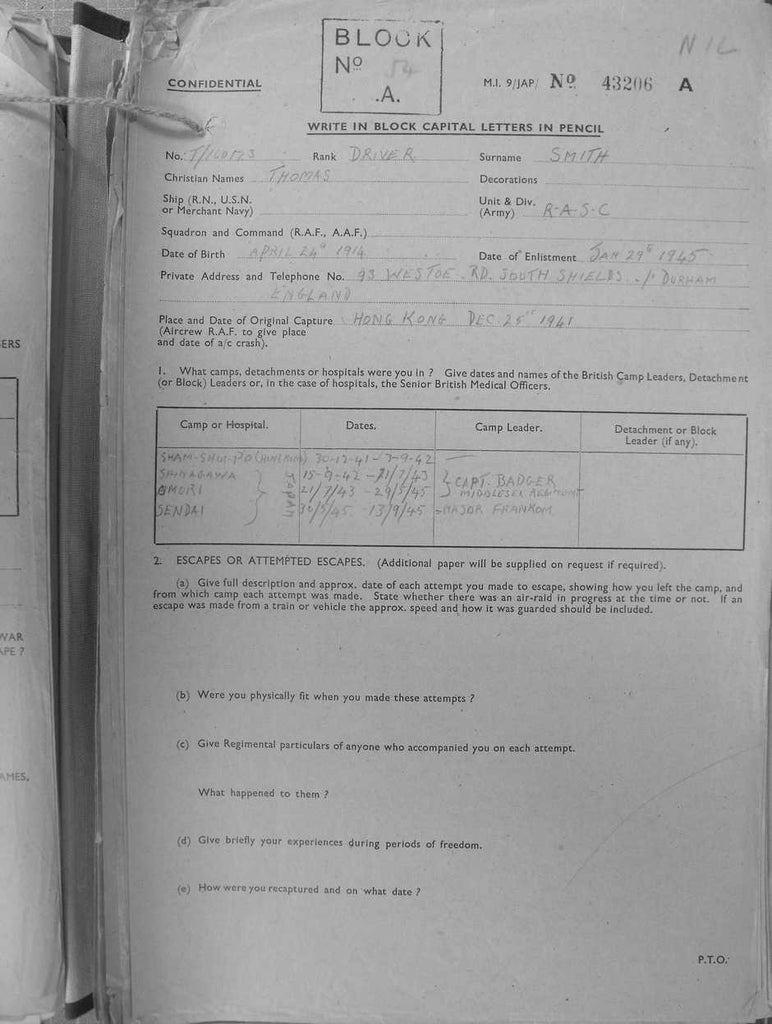 BLOCK
Nº 54
.A.
NIL
CONFIDENTIAL
M.I. 9/JAP/ Nº 43206 A
WRITE IN BLOCK CAPITAL LETTERS IN PENCIL
No. Rank DRIVER Surname SMITH
Christian Names THOMAS Decorations
Ship (R.N., U.S.N.
or Merchant Navy)
Unit & Div.
(Army) R-A-S-C
Squadron and Command (R.A.F., A.A.F.)
Date of Birth APRIL 24th 1914 Date of Enlistment JAN 29th 1945
Private Address and Telephone No. 93 WESTOE RD. SOUTH SHIELDS DURHAM
ENGLAND
Place and Date of Original Capture HONG KONG DEC 25th 1941
(Aircrew R.A.F. to give place
and date of a/c crash).
1. What camps, detachments or hospitals were you in ? Give dates and names of the British Camp Leaders, Detachment
(or Block) Leaders or, in the case of hospitals, the Senior British Medical Officers.
Camp or Hospital. Dates. Camp Leader. Detachment or Block
Leader (if any).
SHAM-SHUI-PO (HONG KONG) 30-12-41 - 3-9-42
SHINAGAWA 15-9-42 - 21/7/43 CAPT. BADGER
OMORI JAPAN 21/7/43 - 29/5/45 MIDDLESEX REGIMENT
SENDAI 30/5/45 - 13/9/45 - MAJOR FRANKOM
2. ESCAPES OR ATTEMPTED ESCAPES. (Additional paper will be supplied on request if required).
(a) Give full description and approx. date of each attempt you made to escape, showing how you left the camp, and
from which camp each attempt was made. State whether there was an air-raid in progress at the time or not. If an
escape was made from a train or vehicle the approx. speed and how it was guarded should be included.
(b) Were you physically fit when you made these attempts ?
(c) Give Regimental particulars of anyone who accompanied you on each attempt.
What happened to them ?
(d) Give briefly your experiences during periods of freedom.
(e) How were you recaptured and on what date ?
P.T.O.
ERS
WAR
APE ?
AMES.